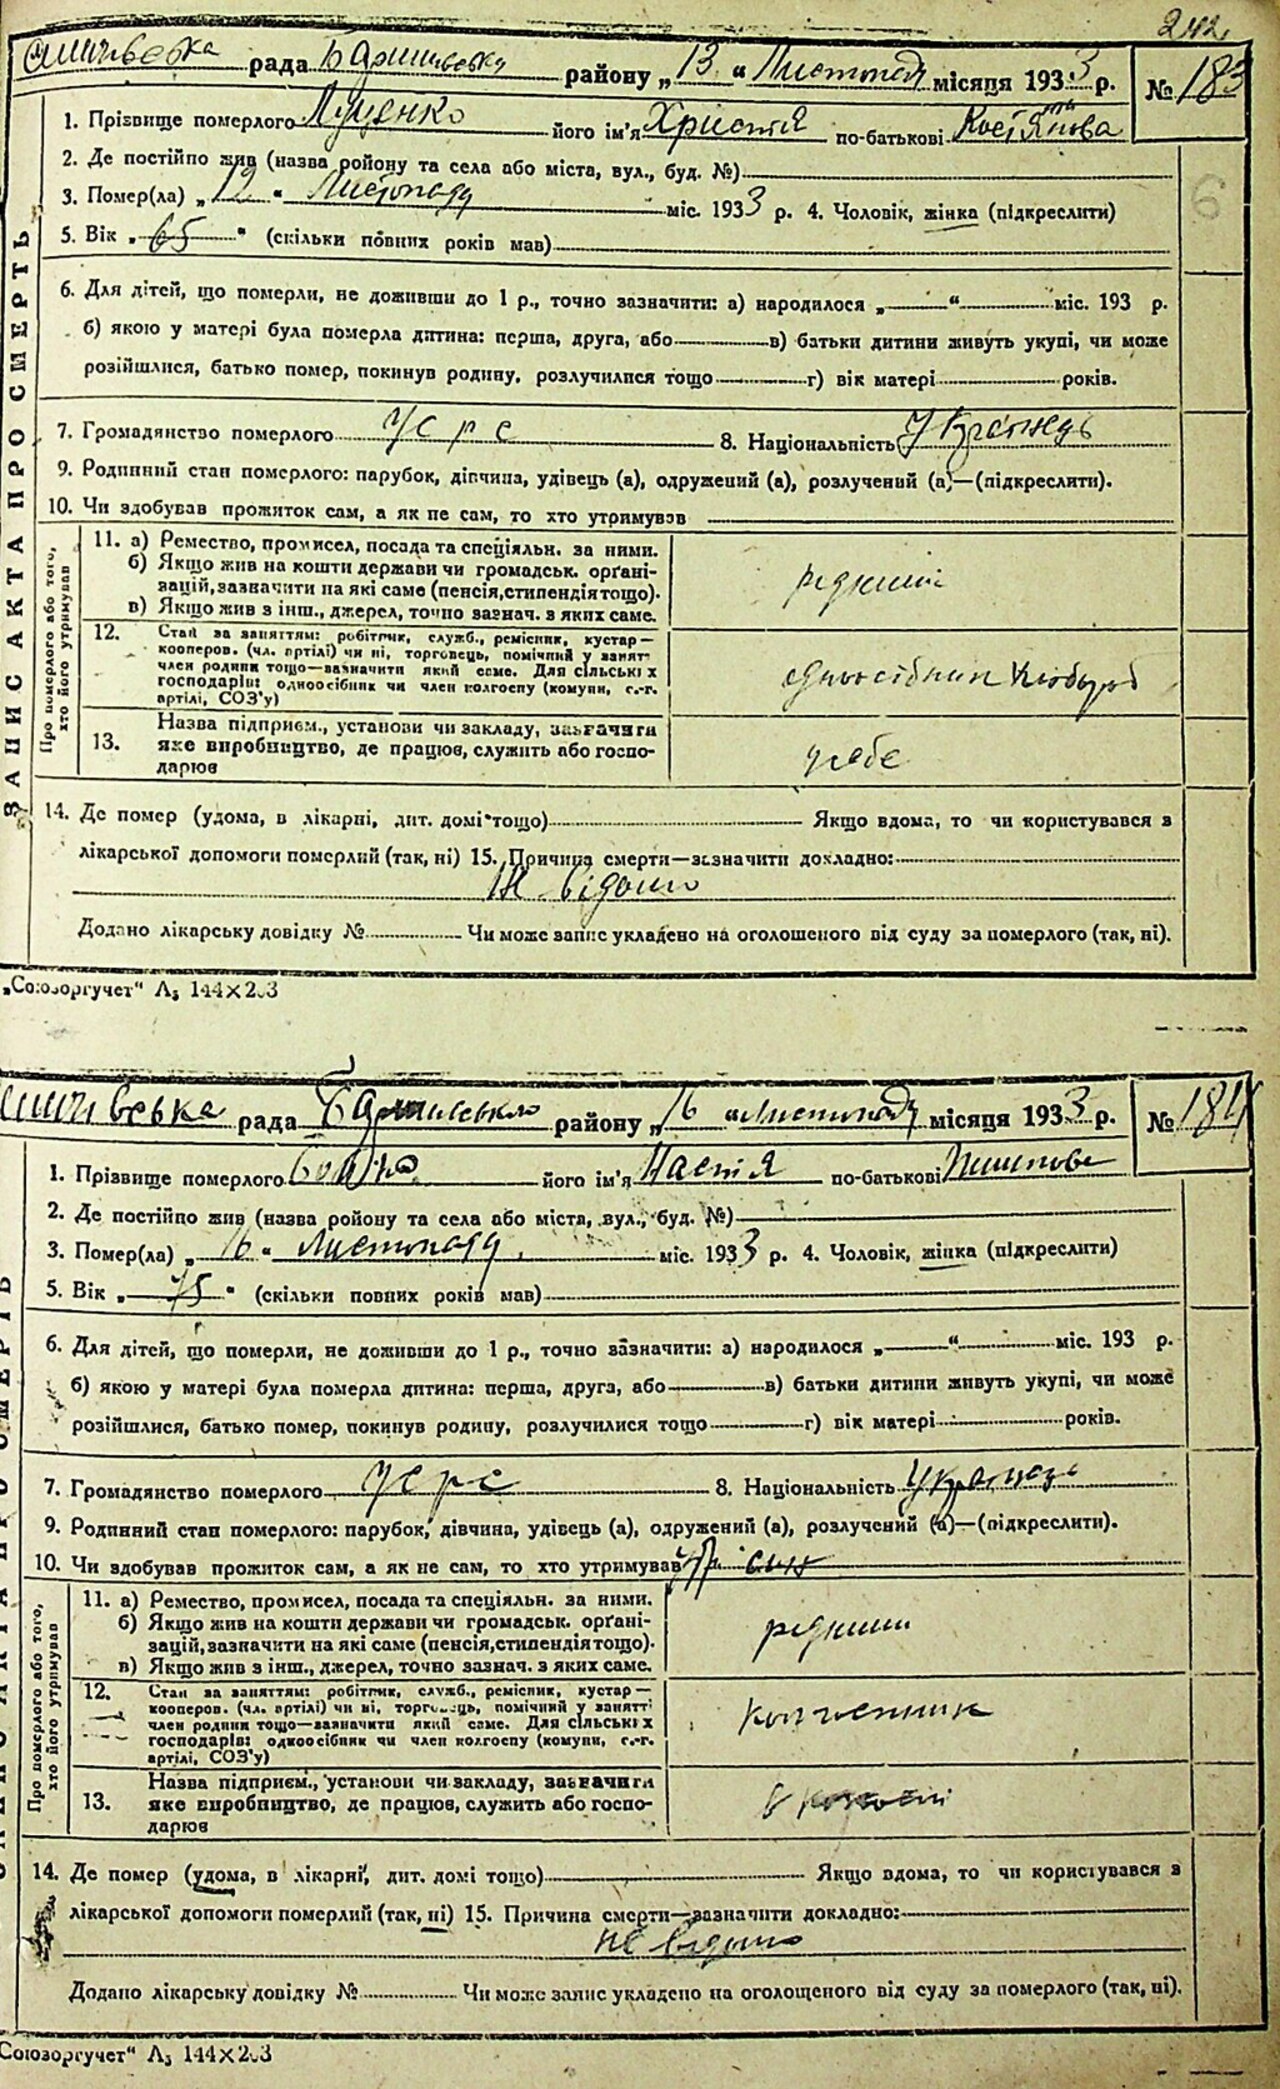 242
рада Баришівська району „13" Листопада місяця 1933 р. № 183
1. Прізвище померлого Луценко його ім'я Хрістія по-батькові
2. Де постійно жив (назва району та села або міста, вул., буд. №)
3. Помер(ла) „12" Листопада міс. 1933 р. 4. Чоловік, жінка (підкреслити)
5. Вік „65" (скільки повних років мав)
6. Для дітей, що померли, не доживши до 1 р., точно зазначити: а) народилося „ " міс. 193 р.
б) якою у матері була померла дитина: перша, друга, або в) батьки дитини живуть укупі, чи може
розійшлися, батько помер, покинув родину, розлучилися тощо г) вік матері років.
7. Громадянство померлого УСРС 8. Національність Українець
9. Родинний стан померлого: парубок, дівчина, удівець (а), одружений (а), розлучений (а)—(підкреслити).
10. Чи здобував прожиток сам, а як не сам, то хто утримував
ЗАПИС АКТА ПРО СМЕРТЬ
Про померлого або того, хто його утримував
11. а) Ремество, промисел, посада та спеціяльн. за ними.
б) Якщо жив на кошти держави чи громадськ. орґані-
зацій, зазначити на які саме (пенсія, стипендія тощо).
в) Якщо жив з інш., джерел, точно зазнач. з яких саме.
12. Стан за заняттям: робітник, служб., ремісник, кустар—
кооперов. (чл. артілі) чи ні, торговець, помічний у занятт
член родини тощо—зазначити який саме. Для сільських
господарів: одноосібник чи член колгоспу (комуни, с.-г.
артілі, СОЗ'у)
одноосібник
13. Назва підприєм., установи чи закладу, зазначити
яке виробництво, де працює, служить або господарює
у себе
14. Де помер (удома, в лікарні, дит. домі тощо) Якщо вдома, то чи користувався з
лікарської допомоги померлий (так, ні) 15. Причина смерти—зазначити докладно:
Не відомо
Додано лікарську довідку № Чи може запис укладено на оголошеного від суду за померлого (так, ні).
„Союзоргучет" А₅ 144×203
рада Баришівська району „16" Листопада місяця 1933 р. № 184
1. Прізвище померлого його ім'я Настія по-батькові
2. Де постійно жив (назва району та села або міста, вул., буд. №)
3. Помер(ла) „16" Листопада міс. 1933 р. 4. Чоловік, жінка (підкреслити)
5. Вік „75" (скільки повних років мав)
6. Для дітей, що померли, не доживши до 1 р., точно зазначити: а) народилося „ " міс. 193 р.
б) якою у матері була померла дитина: перша, друга, або в) батьки дитини живуть укупі, чи може
розійшлися, батько помер, покинув родину, розлучилися тощо г) вік матері років.
7. Громадянство померлого УСРС 8. Національність Українець
9. Родинний стан померлого: парубок, дівчина, удівець (а), одружений (а), розлучений (а)—(підкреслити).
10. Чи здобував прожиток сам, а як не сам, то хто утримував син
Про померлого або того, хто його утримував
11. а) Ремество, промисел, посада та спеціяльн. за ними.
б) Якщо жив на кошти держави чи громадськ. орґані-
зацій, зазначити на які саме (пенсія, стипендія тощо).
в) Якщо жив з інш., джерел, точно зазнач. з яких саме.
12. Стан за заняттям: робітник, служб., ремісник, кустар—
кооперов. (чл. артілі) чи ні, торговець, помічний у занятті
член родини тощо—зазначити який саме. Для сільських
господарів: одноосібник чи член колгоспу (комуни, с.-г.
артілі, СОЗ'у)
13. Назва підприєм., установи чи закладу, зазначити
яке виробництво, де працює, служить або господарює
14. Де помер (удома, в лікарні, дит. домі тощо) Якщо вдома, то чи користувався з
лікарської допомоги померлий (так, ні) 15. Причина смерти—зазначити докладно:
не відомо
Додано лікарську довідку № Чи може запис укладено на оголошеного від суду за померлого (так, ні).
Союзоргучет" А₅ 144×203